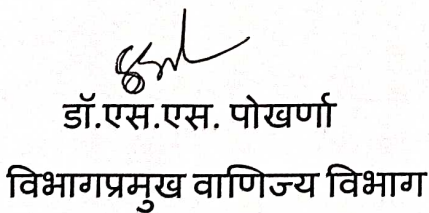 डॉ.एस.एस. पोखर्णा
विभागप्रमुख वाणिज्य विभाग